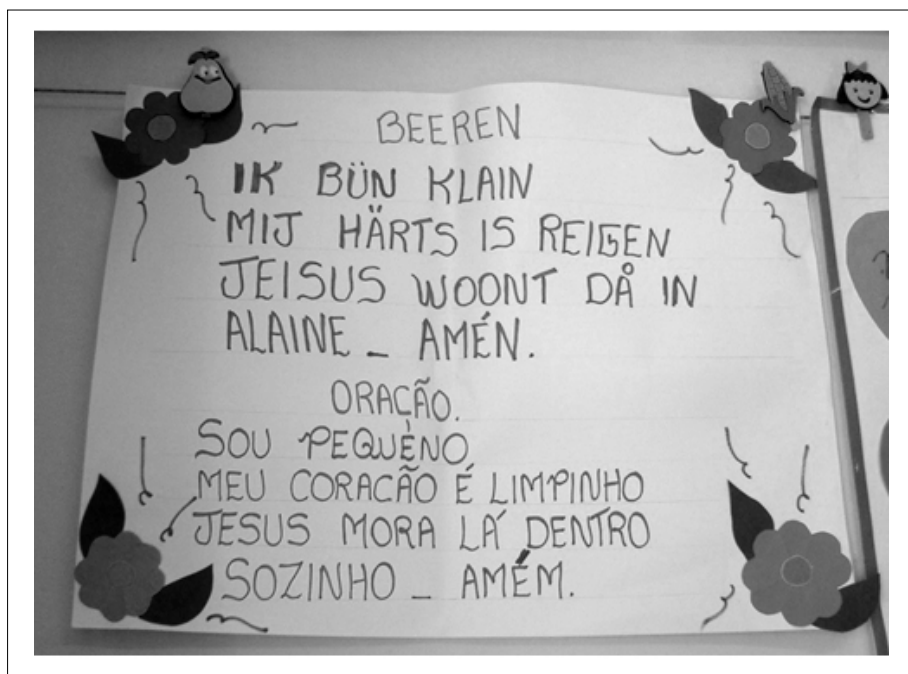 BEEREN
IK BÜN KLAIN
MIJ HÄRTS IS REIGEN
JEISUS WOONT DÅ IN
ALAINE _ AMÉN.
ORAÇÃO.
SOU PEQUÉNO
MEU CORACÃO É LIMPINHO
JESUS MORA LÁ DENTRO
SOZINHO _ AMÉM.